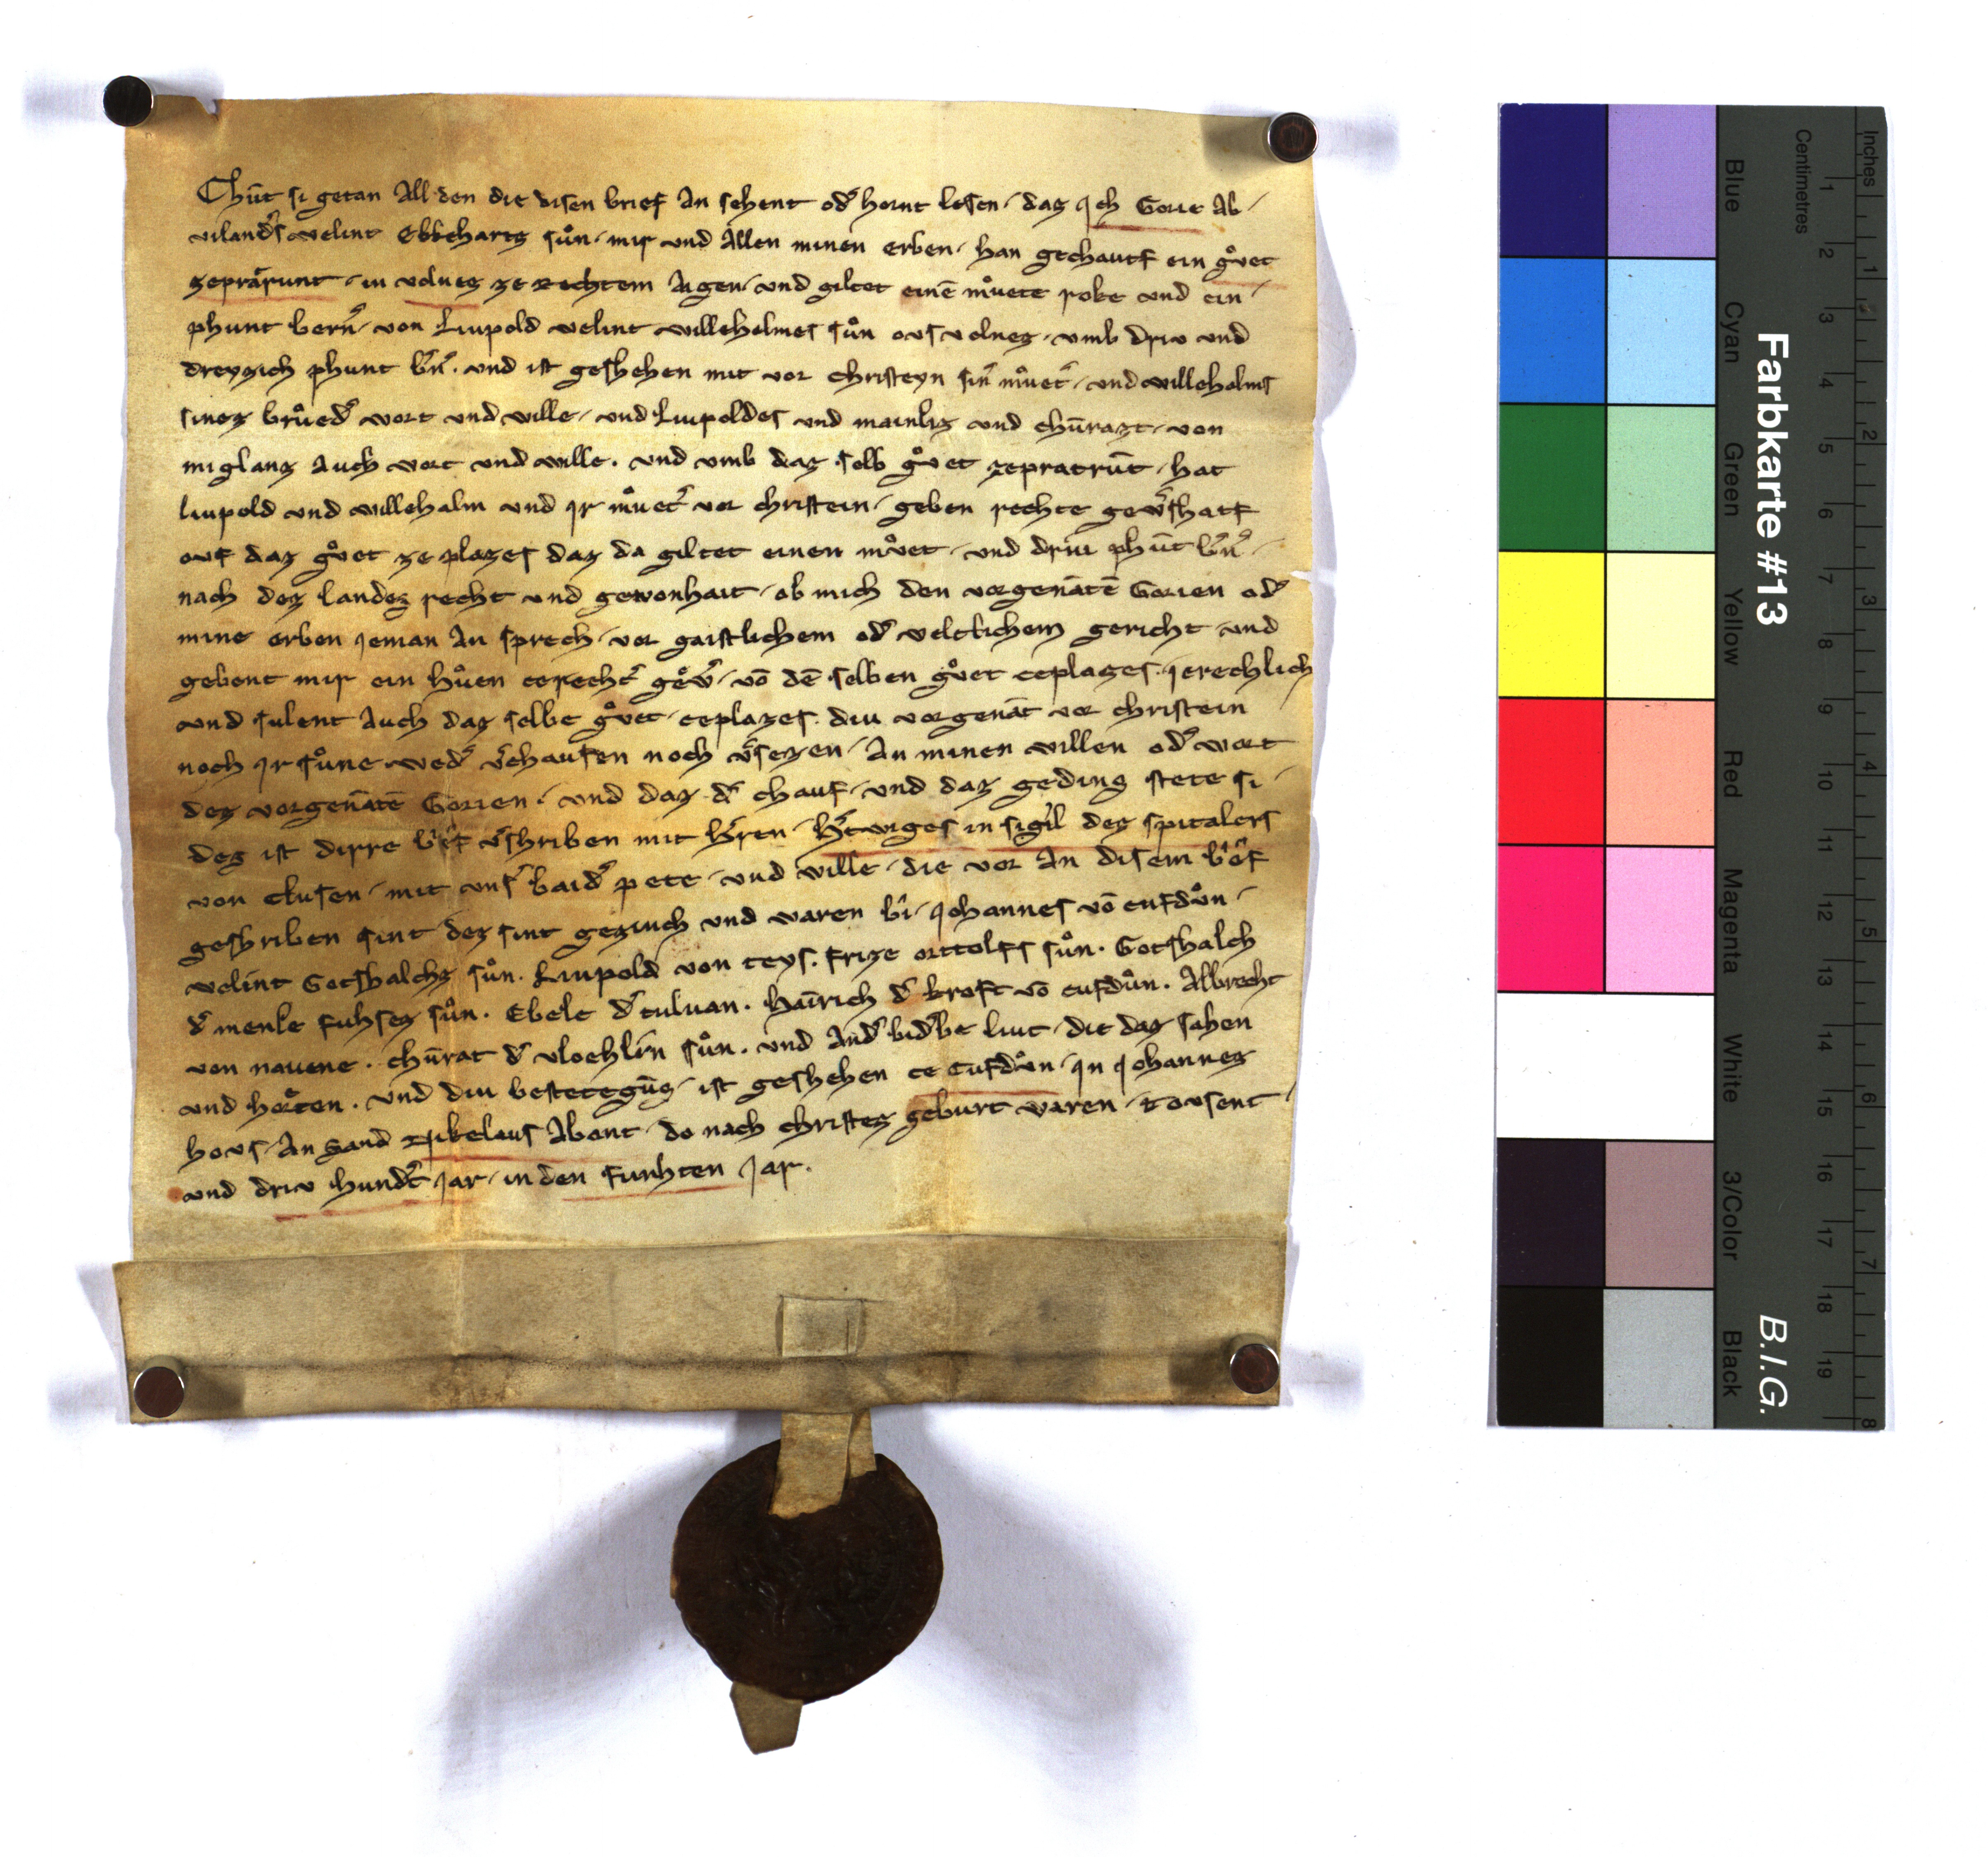 Chūt si getan All den die disen brief An sehent od͛ hornt lesen / daz ich Gorie Ab /
viland͛s velint Ekkehartz sůn / mir und Allen minen erben / han gechautf ein gůet
zeprarunt / in velnes ze rechtem Aigen / und giltet einē můete roke und ein /
phunt bern͛ / von Liupold velint willehelmes sůn ovs velnes / umb driv und
dreyzich phunt b͛n͛ . und ist geshehen mit vor christeyn sin͛ můet͛ / und willehalms
sinez brůed͛ wort und wille / und Liupoldes und mainliz und chūrazt / von
miglanz Auch wort und wille . und umb daz selb gůet zepratrūt / hat
liupold und willehalm und ir můet͛ vor christein / geben rechte gew͛shatf
ouf daz gůet ze plazes daz da giltet einen můet / und driu phūt b͛n͛ /
nach dez landez recht und gewonhait / ob mich den vorgenātē Gorien od͛
mine erben ieman An sprech / vor gaistlichem od͛ veltlichem gericht / und
gebent mir ein hůen cerecht͛ gew͛ / vō dē selben gůet ceplazes . ierechlich
und sulent Auch daz selbe gůet / ceplazes . diu vorgenāt vor christein
noch ir sůne wed͛ v͛chaufen noch v͛sezen / An minen willen od͛ wort
dez vorgenātē Gorien . und daz d͛ chauf / und daz geding stete si /
dez ist dirre b͛ef v͛shriben mit h͛ren / h͛twiges in sigil dez spitalers
von clusen / mit uns͛ baid͛ pete / und wille / die vor An disem b͛ef
geshriben sint / dez sint geziuch und waren bi / Johannes vō cufdůn /
velint Gotshalchz sůn . Liupold von teys . frize orttolfs sůn . Gotshalch
d͛ menle fuhsez sůn . Ebele d͛ tuluan . hainrich d͛ kroft vō cufdůn . Albrecht
von navene . chūrat d͛ vloehlin sůn . und And͛ bid͛be liut / die daz sahen
und horten . und diu bestetegūg / ist geshehen ce cufdůn / in Johannez
hovs / An sand Nikelaus Abent / do nach christez geburt waren / tovsent /
und driv hund͛t jar / in den funhten jar .
Farbkarte #13
B.I.G.
Inches
Centimetres
1 2 3 4 5 6 7 8 9 10 11 12 13 14 15 16 17 18 19
1 2 3 4 5 6 7 8
Blue
Cyan
Green
Yellow
Red
Magenta
White
3/Color
Black